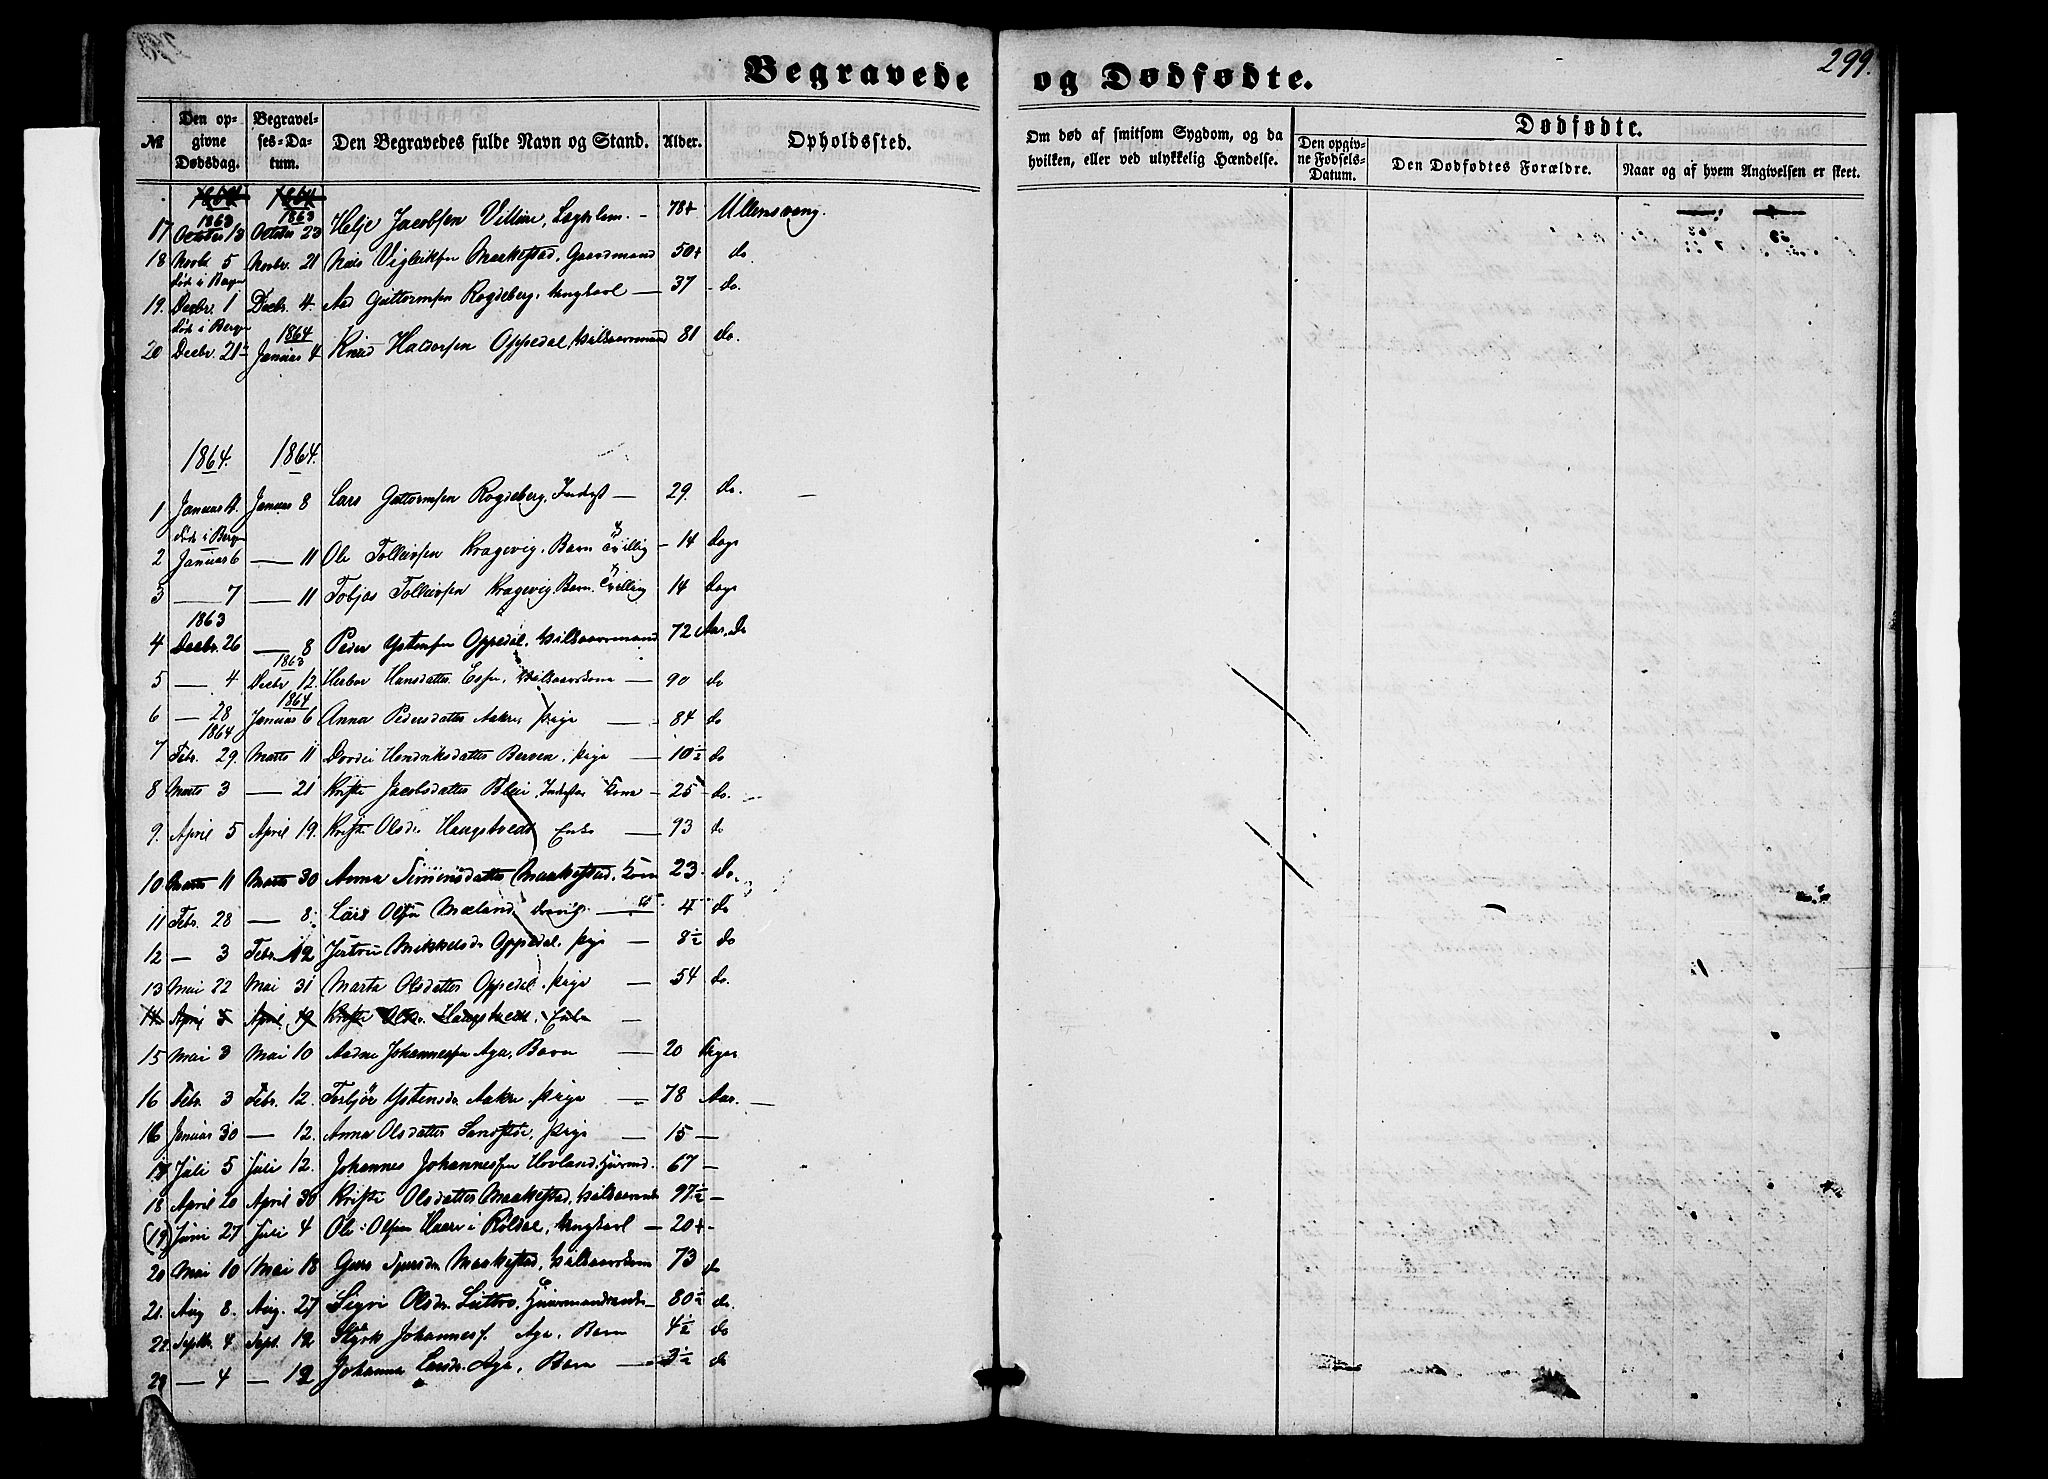 299.
Begravede og Dødfødte.
№
Den opgivne Dødsdag.
Begravelses-Datum.
Den Begravedes fulde Navn og Stand.
Alder.
Opholdssted.
Om død af smitsom Sygdom, og da hvilken, eller ved ulykkelig Hændelse.
Dødfødte.
Den opgivne Fødsels-Datum.
Den Dødfødtes Forældre.
Naar og af hvem Angivelsen er skeet.
1864 1864
1863 1863
17 October 13 October 23 Helje Jacobsen 78 Ullensvang.
18 Novbr 5 Novbr. 21 Nels Vigleiksen Maakestad, Gaardmand 50 do
død i Bergen
19. Decbr. 1 Decbr. 4. Aad Guttormsen Rogdeberg, Ungkarl 37 do.
død i Bergen 1864
20 Decbr. 21 Januar 4 Knud Haldorsen Oppedal, 81 do.
1864. 1864.
1 Januar 4. Januar 8 Lars Guttormsen Rogdeberg, Inderst 29. do.
død i Bergen
2 Januar 6 — 11 Ole Tolleivsen Kragevig, Barn Tvilling 14 dage
3 — 7 — 11 Tobias Tolleivsen Kragevig, Barn. Tvilling 14 dage
1863
4 Decbr. 26 — 8 Peder Ystensen Oppedal, 72 Aar. do
1863
5 — 4 Decbr 12. Herbor Hansdatter Espe, 90 do
1864
6 — 28 Januar 6 Anna Pedersdatter Aakre, Pige 84 do
1864
7 Febr. 29. Marts 11 Hendriksdatter Berven, Pige 10½ do
8 Marts 3 — 21 Kristi Jacobsdatter Bleie, Kone 25 do.
9. April 5 April 19. Kristi Olsdr. Haugstvedt Enke 93 do
10 Marts 11 Marts 30 Anna Simensdatter Maakestad, Kone 23. do.
11 Febr. 28 — 8. Lars Olsen Mæland, 4 do
12 — 3 Febr. 12 Jertrui Mikkelsdr. Oppedal, Pige 8½ do
13 Mai 22 Mai 31 Marta Olsdatter Oppedal, Pige 54 do.
14 April 5 April 19 Kristi Olsdr. Haugstvedt, Enke
15 Mai 3 Mai 10 Aadne Johannessen Aga, Barn 20 Uger
16 Febr. 3 Febr. 12. Torbjør Ystensdr. Aakre, Pige 78 Aar.
16 Januar 30 — 12. Anna Olsdatter Sandstø, Pige 15 —
17 Juli 5 Juli 12. Johannes Johannessen Hovland, 67 —
18 April 20 April 30 Kristi Olsdatter Maakestad, 97½ —
(19) Juni 27 Juli 4 Ole Olsen i Røldal, Ungkarl 20 —
20 Mai 10 Mai 18 Guro Maakestad, 73 do
21. Aug 8. Aug. 27 Sigri Olsdr. Lutro, 80½ do.
22 Septbr. 4 Sept. 12 Johannesf. Aga, Barn 4½ do
23 — 4 — 12 Johanna Larsdr. Aga, Barn 3½ do